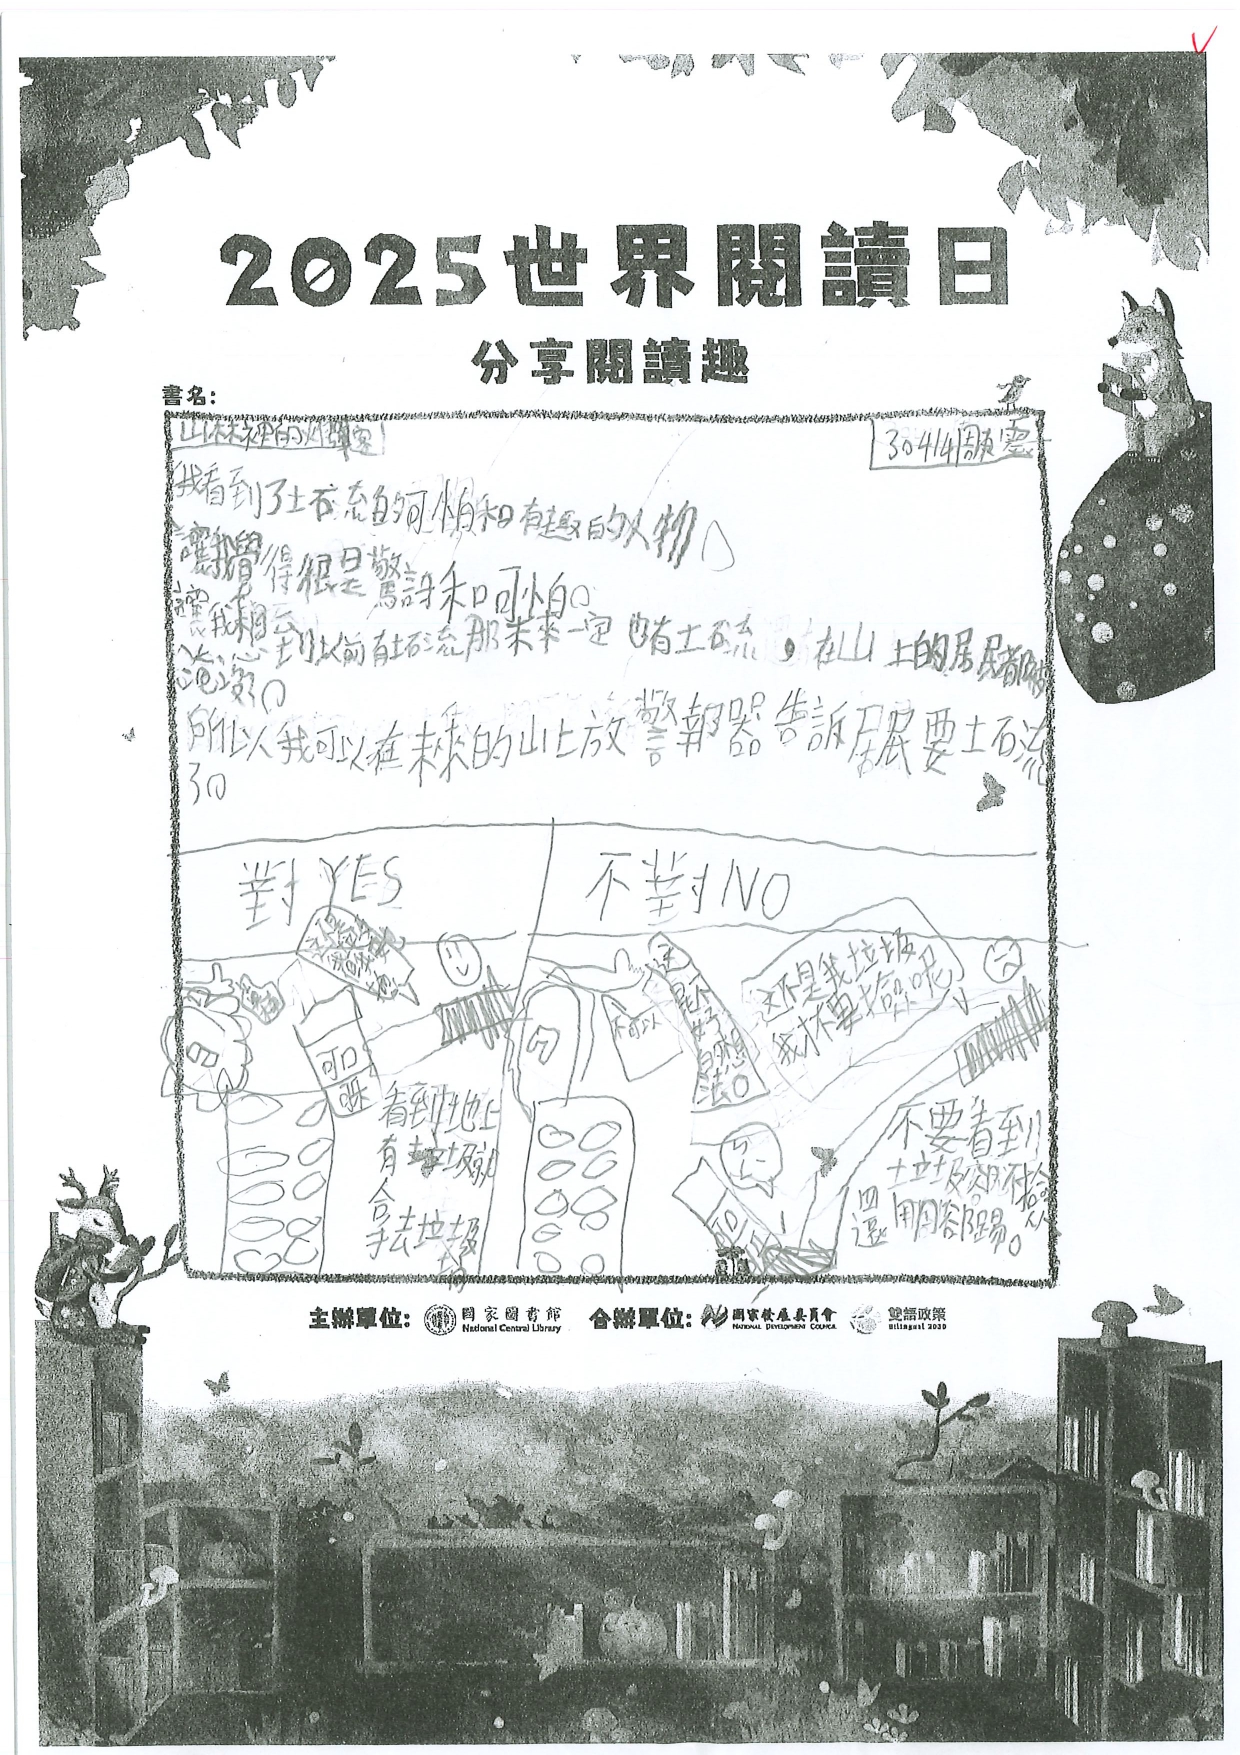 2025世界閱讀日
分享閱讀趣
書名:
山林裡的炸彈客
30414周
我看到了土石流的可怕和有趣的人物。
讓我覺得很是驚訝和可怕。
讓我想到以前有土石流那未來一定也有土石流，在山上的居民都被
淹沒。
所以我可以在未來的山上放警報器告訴居民要土石流
了。
對YES
不對NO
可口
看到地上
有垃圾就
拿去垃圾
不可以
這是不好的想法。
這不是我垃圾
我才不要撿呢
不要看到
垃圾
用腳踢。
主辦單位:
國家圖書館
National Central Library
合辦單位:
國家發展委員會
NATIONAL DEVELOPMENT COUNCIL
雙語政策
Bilingual 2030